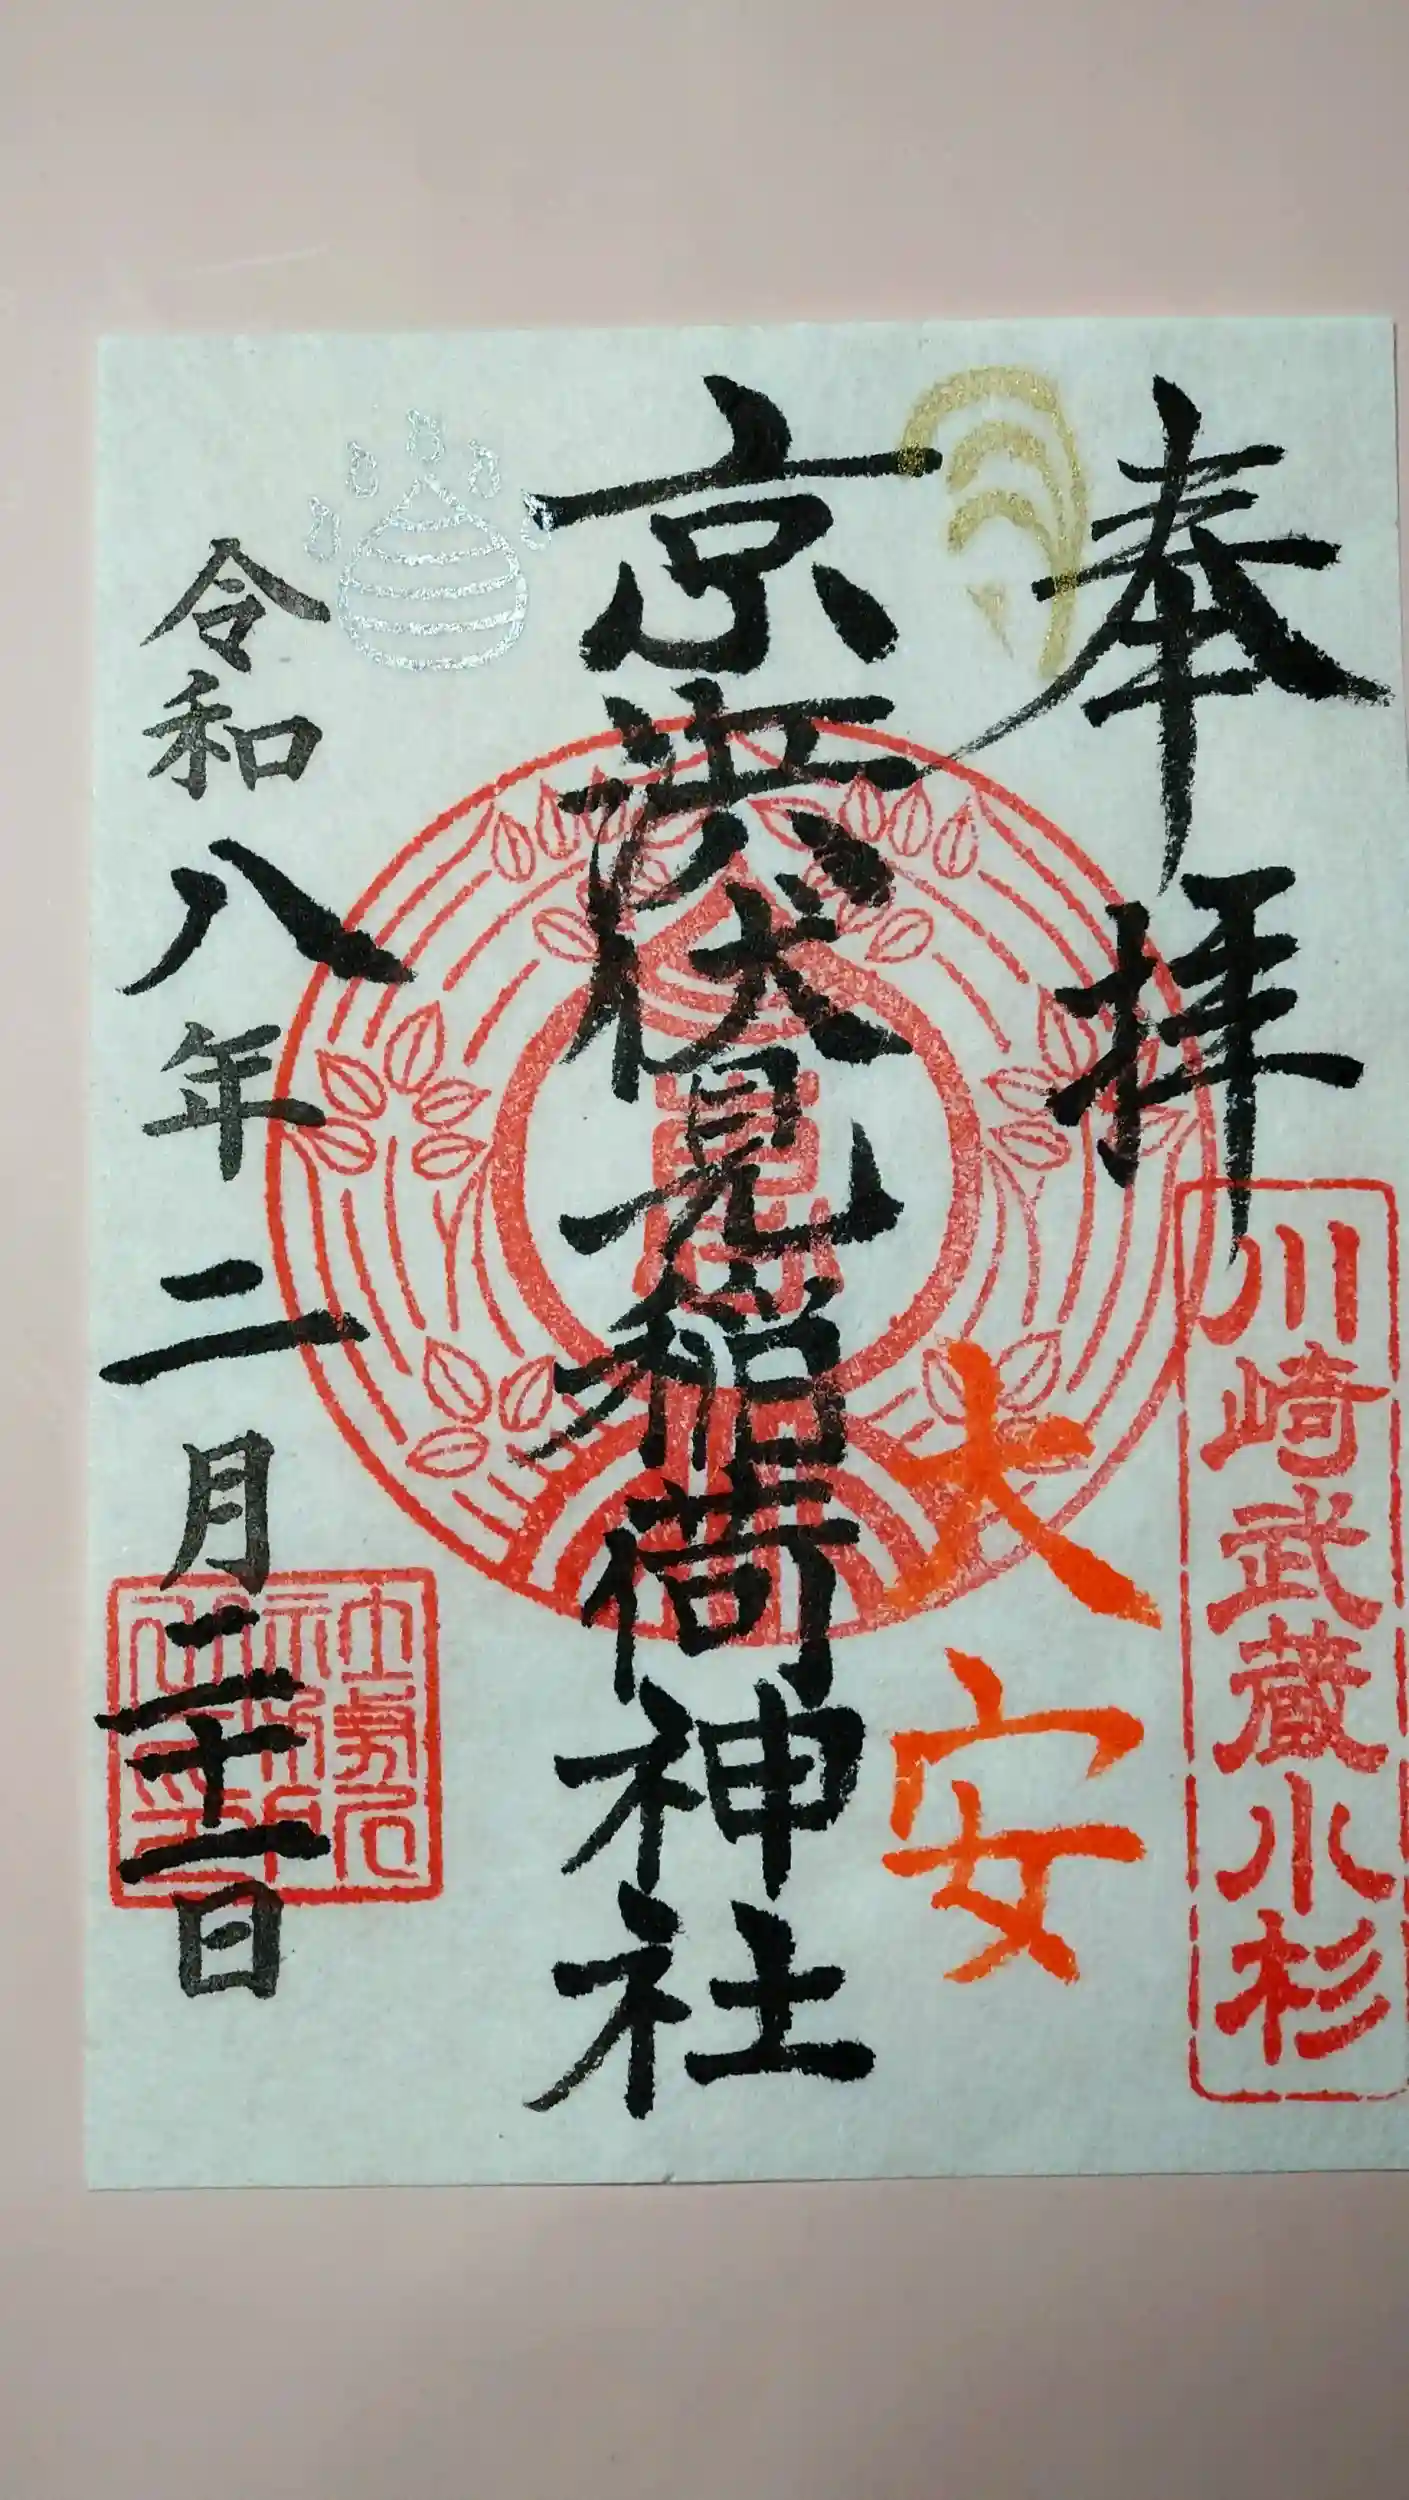 奉拝
川崎武蔵小杉
大安
京濱伏見稲荷神社
令和八年二月二十一日